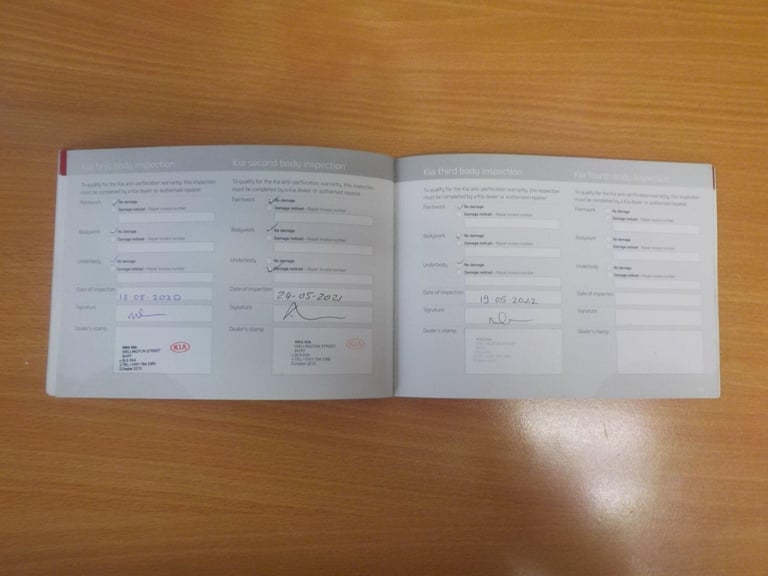 Kia first body inspection
To qualify for the Kia anti-perforation warranty, this inspection
must be completed by a Kia dealer or authorised repairer.
Paintwork
No damage
Damage noticed - Repair invoice number
Bodywork
No damage
Damage noticed - Repair invoice number
Underbody
No damage
Damage noticed - Repair invoice number
Date of inspection
18-05-2020
Signature
Dealer's stamp
KIA
WELLINGTON STREET
BURY
Kia second body inspection
To qualify for the Kia anti-perforation warranty, this inspection
must be completed by a Kia dealer or authorised repairer.
Paintwork
No damage
Damage noticed - Repair invoice number
Bodywork
No damage
Damage noticed - Repair invoice number
Underbody
No damage
Damage noticed - Repair invoice number
Date of inspection
24-05-2021
Signature
Dealer's stamp
KIA
WELLINGTON STREET
BURY
Kia third body inspection
To qualify for the Kia anti-perforation warranty, this inspection
must be completed by a Kia dealer or authorised repairer.
Paintwork
No damage
Damage noticed - Repair invoice number
Bodywork
No damage
Damage noticed - Repair invoice number
Underbody
No damage
Damage noticed - Repair invoice number
Date of inspection
19 05-2022
Signature
Dealer's stamp
Kia fourth body inspection
To qualify for the Kia anti-perforation warranty, this inspection
must be completed by a Kia dealer or authorised repairer.
Paintwork
No damage
Damage noticed - Repair invoice number
Bodywork
No damage
Damage noticed - Repair invoice number
Underbody
No damage
Damage noticed - Repair invoice number
Date of inspection
Signature
Dealer's stamp